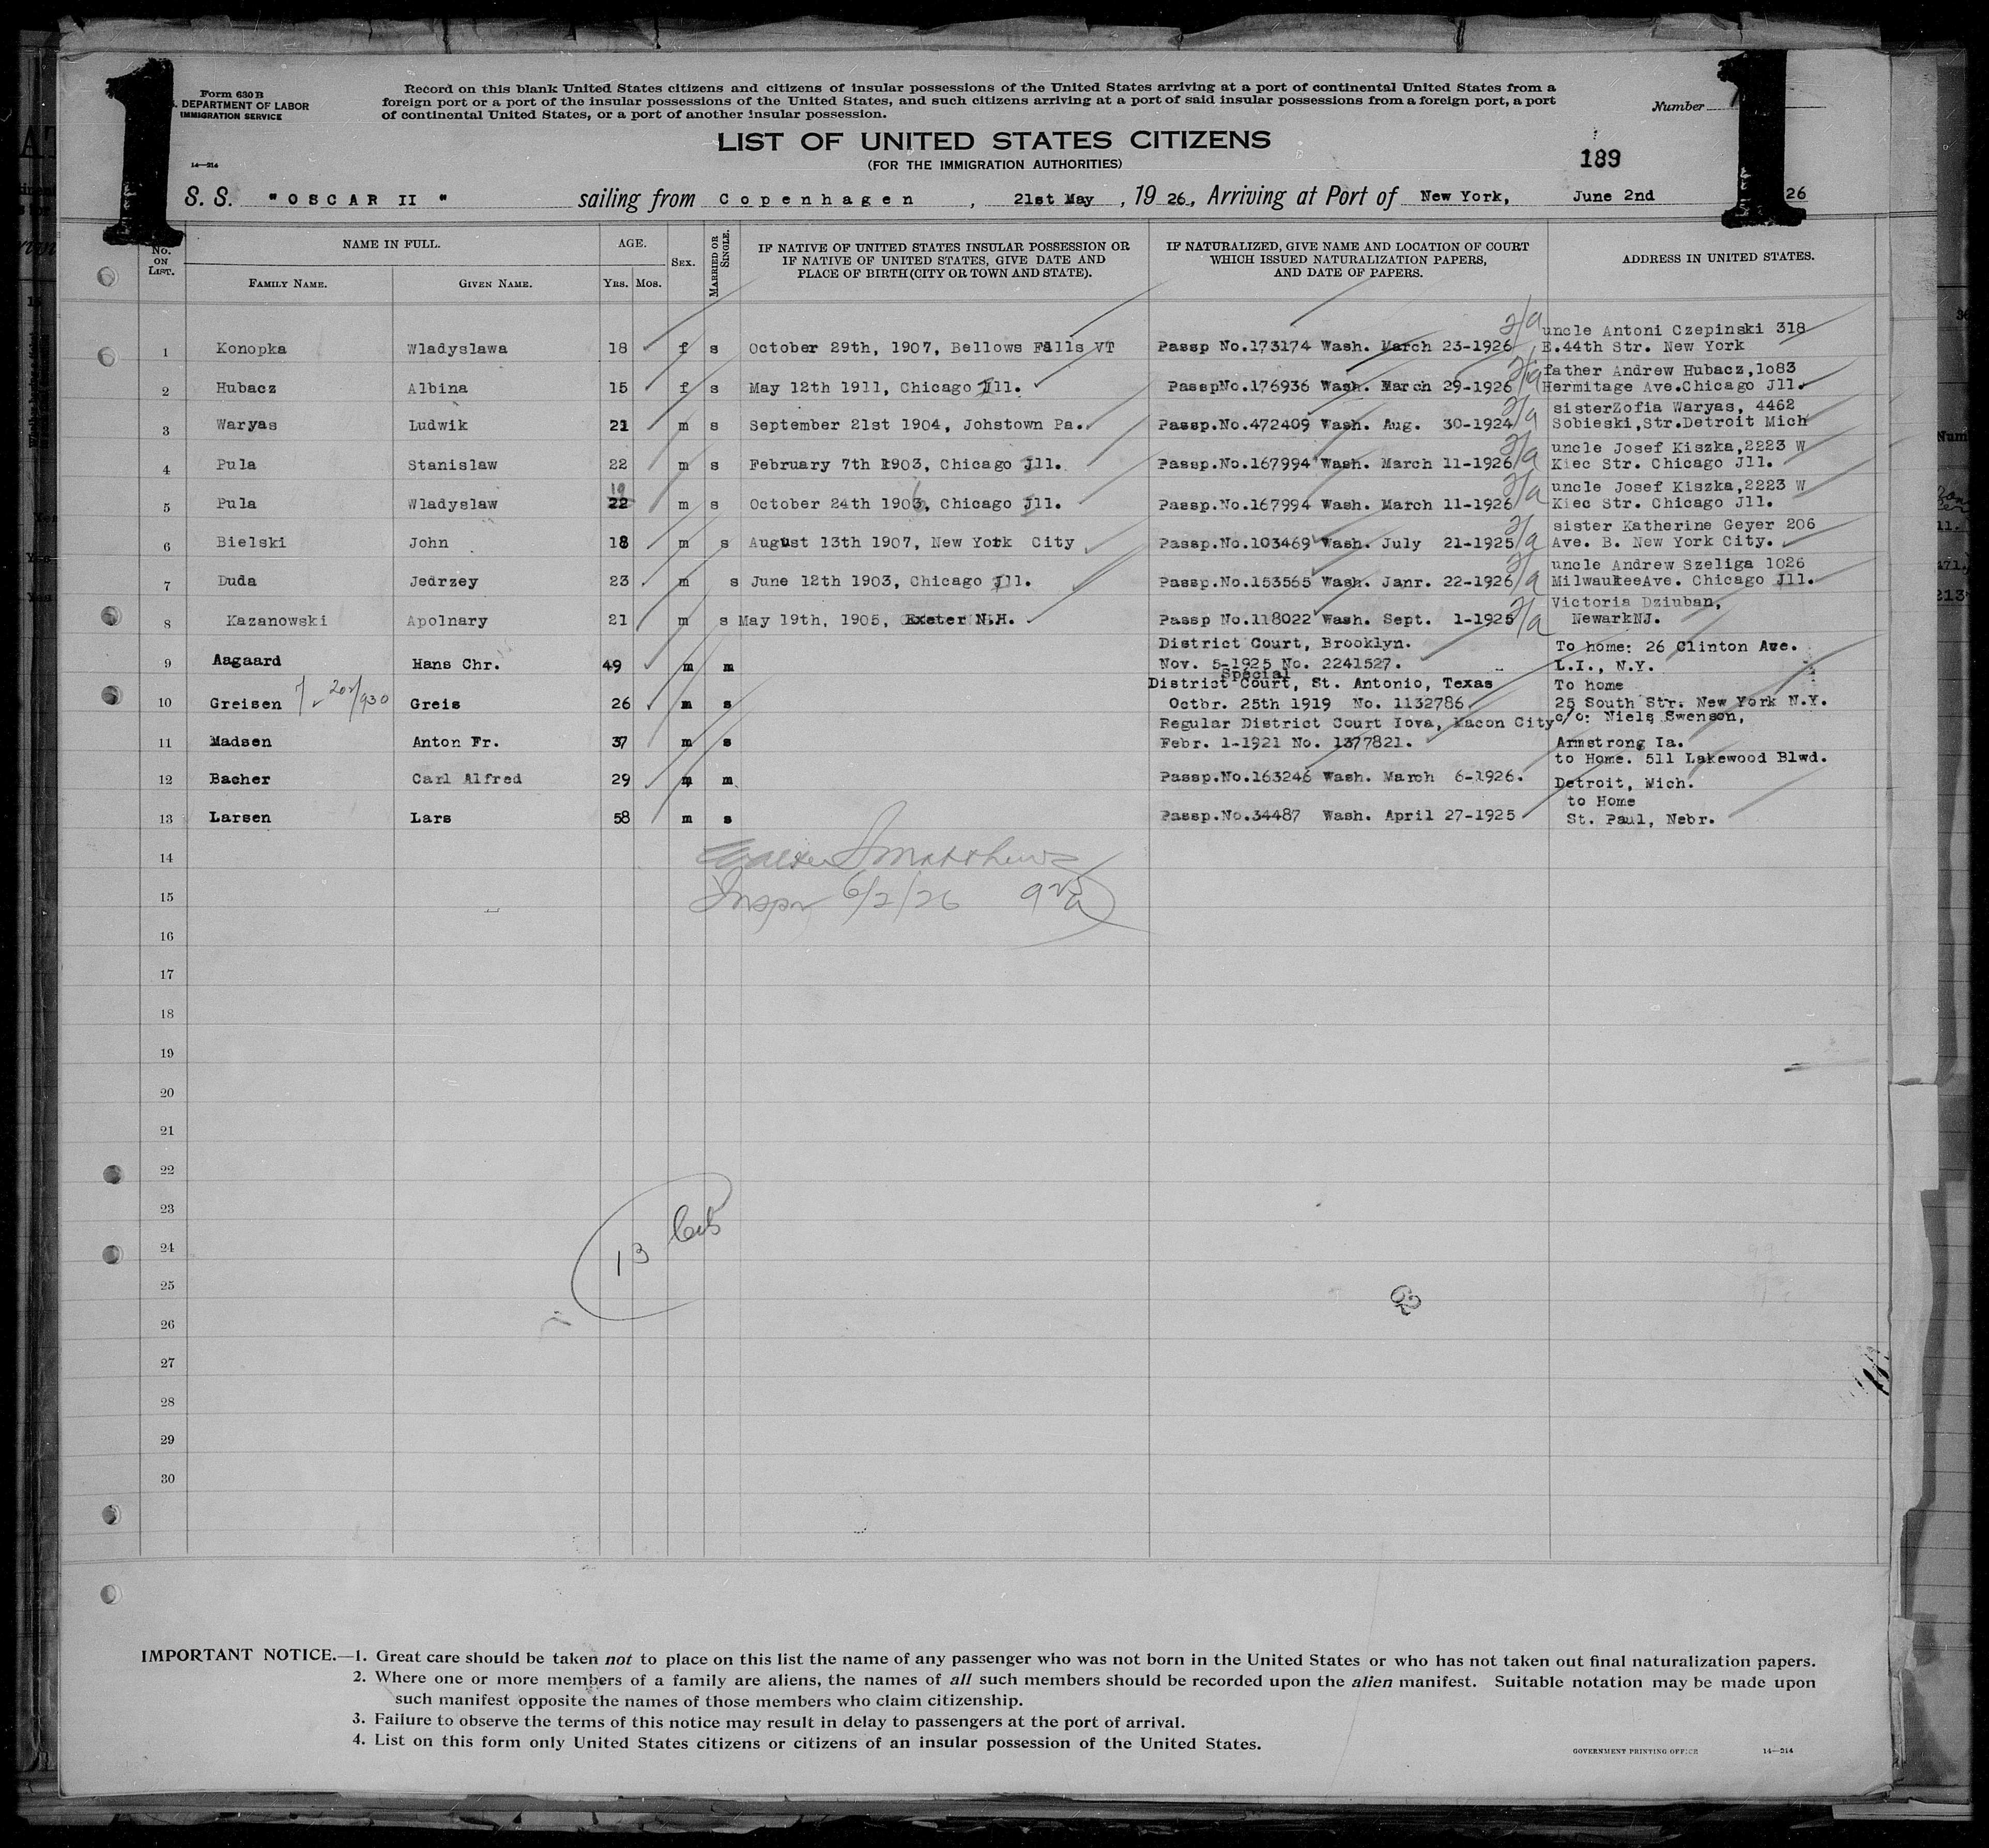 1
1
Form 630 B
DEPARTMENT OF LABOR
IMMIGRATION SERVICE
14—214
Record on this blank United States citizens and citizens of insular possessions of the United States arriving at a port of continental United States from a
foreign port or a port of the insular possessions of the United States, and such citizens arriving at a port of said insular possessions from a foreign port, a port
of continental United States, or a port of another insular possession.
Number
LIST OF UNITED STATES CITIZENS
(FOR THE IMMIGRATION AUTHORITIES)
189
S. S. "OSCAR II" sailing from Copenhagen, 21st May, 1926, Arriving at Port of New York, June 2nd 26
No. ON LIST. NAME IN FULL. FAMILY NAME. GIVEN NAME. AGE. YRS. MOS. SEX. MARRIED OR SINGLE. IF NATIVE OF UNITED STATES INSULAR POSSESSION OR IF NATIVE OF UNITED STATES, GIVE DATE AND PLACE OF BIRTH (CITY OR TOWN AND STATE). IF NATURALIZED, GIVE NAME AND LOCATION OF COURT WHICH ISSUED NATURALIZATION PAPERS, AND DATE OF PAPERS. ADDRESS IN UNITED STATES.
uncle Antoni Czepinski 318
1 Konopka Wladyslawa 18 f s October 29th, 1907, Bellows Falls VT Passp No.173174 Wash. March 23-1926 E.44th Str. New York
father Andrew Hubacz,1o83
2 Hubacz Albina 15 f s May 12th 1911, Chicago Ill. PasspNo.176936 Wash. March 29-1926 Hermitage Ave.Chicago Jll.
sisterZofia Waryas, 4462
3 Waryas Ludwik 21 m s September 21st 1904, Johstown Pa. Passp.No.472409 Wash. Aug. 30-1924 Sobieski,Str.Detroit Mich
uncle Josef Kiszka,2223 W
4 Pula Stanislaw 22 m s February 7th 1903, Chicago Jll. Passp.No.167994 Wash. March 11-1926 Kiec Str. Chicago Jll.
19 uncle Josef Kiszka,2223 W
5 Pula Wladyslaw 22 m s October 24th 1903, Chicago Jll. Passp.No.167994 Wash. March 11-1926 Kiec Str. Chicago Jll.
sister Katherine Geyer 206
6 Bielski John 18 m s August 13th 1907, New York City Passp.No.103469 Wash. July 21-1925 Ave. B. New York City.
uncle Andrew Szeliga 1026
7 Duda Jedrzey 23 m s June 12th 1903, Chicago Jll. Passp.No.153565 Wash. Janr. 22-1926 MilwaukeeAve. Chicago Jll.
Victoria Dziuban,
8 Kazanowski Apolnary 21 m s May 19th, 1905, Exeter N.H. Passp No.118022 Wash. Sept. 1-1925 NewarkNJ.
District Court, Brooklyn. To home: 26 Clinton Ave.
9 Aagaard Hans Chr. 49 m m Nov. 5-1925 No. 2241527. L.I., N.Y.
Special
District Court, St. Antonio, Texas To home
10 Greisen Greis 26 m s Octbr. 25th 1919 No. 1132786. 25 South Str. New York N.Y.
Regular District Court Iova, Macon City c/o: Niels Swenson,
11 Madsen Anton Fr. 37 m s Febr. 1-1921 No. 1377821. Armstrong Ia.
to Home. 511 Lakewood Blwd.
12 Bacher Carl Alfred 29 m m Passp.No.163246 Wash. March 6-1926. Detroit, Mich.
to Home
13 Larsen Lars 58 m s Passp.No.34487 Wash. April 27-1925 St. Paul, Nebr.
14
Walter S Matthews
15
Inspr 6/2/26
16
17
18
19
20
21
22
23
24
13
25
26
27
28
29
30
IMPORTANT NOTICE.—1. Great care should be taken not to place on this list the name of any passenger who was not born in the United States or who has not taken out final naturalization papers.
2. Where one or more members of a family are aliens, the names of all such members should be recorded upon the alien manifest. Suitable notation may be made upon
such manifest opposite the names of those members who claim citizenship.
3. Failure to observe the terms of this notice may result in delay to passengers at the port of arrival.
4. List on this form only United States citizens or citizens of an insular possession of the United States.
GOVERNMENT PRINTING OFFICE 14—214